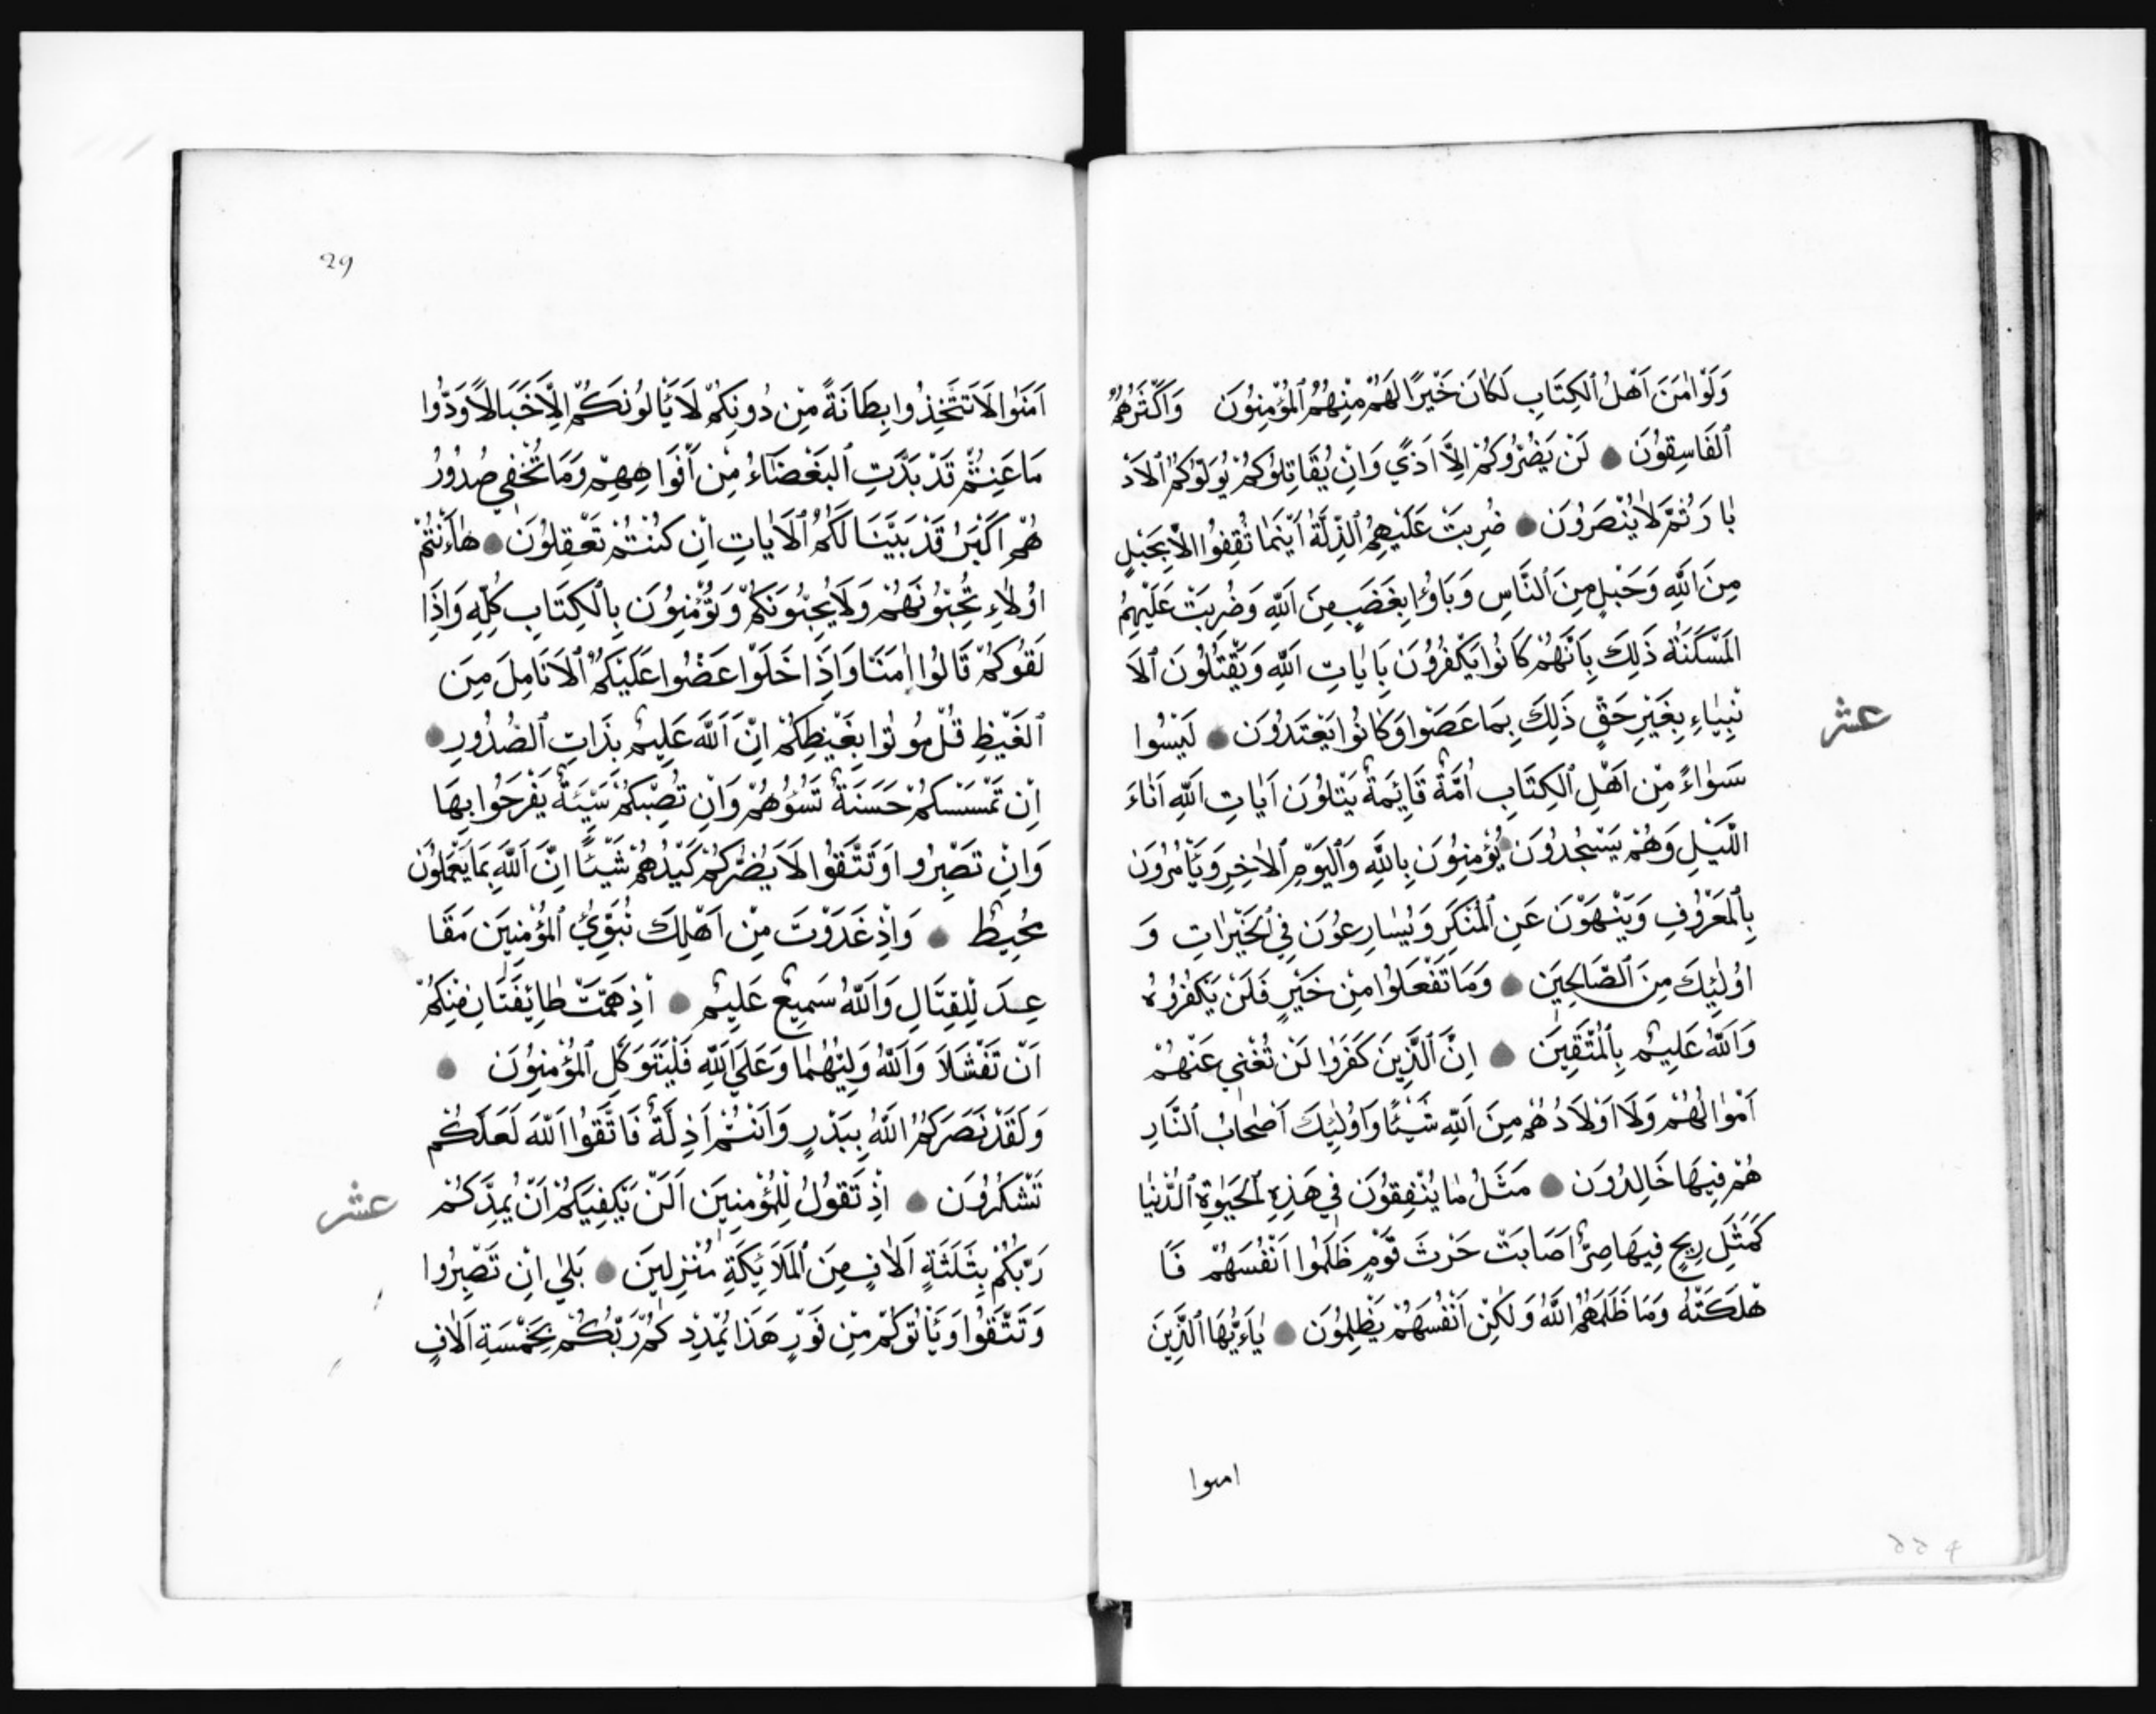 وَلَوْ اٰمَنَ اَهْلُ ٱلْكِتَابِ لَكَانَ خَيْرًا لَهُمْ مِنْهُمُ ٱلْمُؤْمِنُونَ وَاَكْثَرُهُمُ
ٱلْفَاسِقُونَ لَنْ يَضُرُّوكُمْ اِلَّا اَذًي وَاِنْ يُقَاتِلُوكُمْ يُوَلُّوكُمُ ٱلْاَدْ
بَارَ ثُمَّ لَا يُنْصَرُونَ ضُرِبَتْ عَلَيْهِمُ ٱلذِّلَّةُ اَيْنَمَا ثُقِفُوا اِلَّا بِحَبْلٍ
مِنَ ٱللَّهِ وَحَبْلٍ مِنَ ٱلنَّاسِ وَبَاؤُا بِغَضَبٍ مِنَ ٱللَّهِ وَضُرِبَتْ عَلَيْهِمُ
ٱلْمَسْكَنَةُ ذَلِكَ بِاَنَّهُمْ كَانُوا يَكْفُرُونَ بِاٰيَاتِ ٱللَّهِ وَيَقْتُلُونَ ٱلْاَ
نْبِيَاءِ بِغَيْرِ حَقٍّ ذَلِكَ بِمَا عَصَوْا وَكَانُوا يَعْتَدُونَ لَيْسُوا
عشر
سَوٰاءً مِنْ اَهْلِ ٱلْكِتَابِ اُمَّةٌ قَايِمَةٌ يَتْلُونَ اٰيَاتِ ٱللَّهِ اٰنَاءَ
ٱللَّيْلِ وَهُمْ يَسْجُدُونَ يُؤْمِنُونَ بِٱللَّهِ وَٱلْيَوْمِ ٱلْاٰخِرِ وَيَأْمُرُونَ
بِٱلْمَعْرُوفِ وَيَنْهَوْنَ عَنِ ٱلْمُنْكَرِ وَيُسَارِعُونَ فِي ٱلْخَيْرَاتِ وَ
اُولٰئِكَ مِنَ ٱلصَّالِحِينَ وَمَا تَفْعَلُوا مِنْ خَيْرٍ فَلَنْ يَكْفُرُوهُ
وَٱللَّهُ عَلِيمٌ بِٱلْمُتَّقِينَ اِنَّ ٱلَّذِينَ كَفَرُوا لَنْ تُغْنِي عَنْهُمْ
اَمْوَالُهُمْ وَلَا اَوْلَادُهُمْ مِنَ ٱللَّهِ شَيْئًا وَاُولٰئِكَ اَصْحَابُ ٱلنَّارِ
هُمْ فِيهَا خَالِدُونَ مَثَلُ مَا يُنْفِقُونَ فِي هَذِهِ ٱلْحَيٰوةِ ٱلدُّنْيَا
كَمَثَلِ رِيحٍ فِيهَا صِرٌّ اَصَابَتْ حَرْثَ قَوْمٍ ظَلَمُوا اَنْفُسَهُمْ فَاَ
هْلَكَتْهُ وَمَا ظَلَمَهُمُ ٱللَّهُ وَلَكِنْ اَنْفُسَهُمْ يَظْلِمُونَ يَاءَيُّهَا ٱلَّذِينَ
امنوا
29
اٰمَنُوا لَا تَتَّخِذُوا بِطَانَةً مِنْ دُونِكُمْ لَا يَأْلُونَكُمْ اِلَّا خَبَالًا وَدُّوا
مَا عَنِتُّمْ قَدْ بَدَتِ ٱلْبَغْضَاءُ مِنْ اَفْوَاهِهِمْ وَمَا تُخْفِي صُدُورُ
هُمْ اَكْبَرُ قَدْ بَيَّنَّا لَكُمُ ٱلْاٰيَاتِ اِنْ كُنْتُمْ تَعْقِلُونَ هَاءَنْتُمْ
اُولَاءِ تُحِبُّونَهُمْ وَلَا يُحِبُّونَكُمْ وَتُؤْمِنُونَ بِٱلْكِتَابِ كُلِّهِ وَاِذَا
لَقُوكُمْ قَالُوا اٰمَنَّا وَاِذَا خَلَوْا عَضُّوا عَلَيْكُمُ ٱلْاَنَامِلَ مِنَ
ٱلْغَيْظِ قُلْ مُوتُوا بِغَيْظِكُمْ اِنَّ ٱللَّهَ عَلِيمٌ بِذَاتِ ٱلصُّدُورِ
اِنْ تَمْسَسْكُمْ حَسَنَةٌ تَسُؤْهُمْ وَاِنْ تُصِبْكُمْ سَيِّئَةٌ يَفْرَحُوا بِهَا
وَاِنْ تَصْبِرُوا وَتَتَّقُوا لَا يَضُرُّكُمْ كَيْدُهُمْ شَيْئًا اِنَّ ٱللَّهَ بِمَا يَعْمَلُونَ
مُحِيطٌ وَاِذْ غَدَوْتَ مِنْ اَهْلِكَ تُبَوِّئُ ٱلْمُؤْمِنِينَ مَقَا
عِدَ لِلْقِتَالِ وَٱللَّهُ سَمِيعٌ عَلِيمٌ اِذْ هَمَّتْ طَايِفَتَانِ مِنْكُمْ
اَنْ تَفْشَلَا وَٱللَّهُ وَلِيُّهُمَا وَعَلَي ٱللَّهِ فَلْيَتَوَكَّلِ ٱلْمُؤْمِنُونَ
وَلَقَدْ نَصَرَكُمُ ٱللَّهُ بِبَدْرٍ وَاَنْتُمْ اَذِلَّةٌ فَاتَّقُوا ٱللَّهَ لَعَلَّكُمْ
تَشْكُرُونَ اِذْ تَقُولُ لِلْمُؤْمِنِينَ اَلَنْ يَكْفِيَكُمْ اَنْ يُمِدَّكُمْ
عشر
رَبُّكُمْ بِثَلَثَةِ اٰلَافٍ مِنَ ٱلْمَلَايِكَةِ مُنْزَلِينَ بَلَي اِنْ تَصْبِرُوا
وَتَتَّقُوا وَيَأْتُوكُمْ مِنْ فَوْرِ هَذَا يُمْدِدْكُمْ رَبُّكُمْ بِخَمْسَةِ اٰلَافٍ